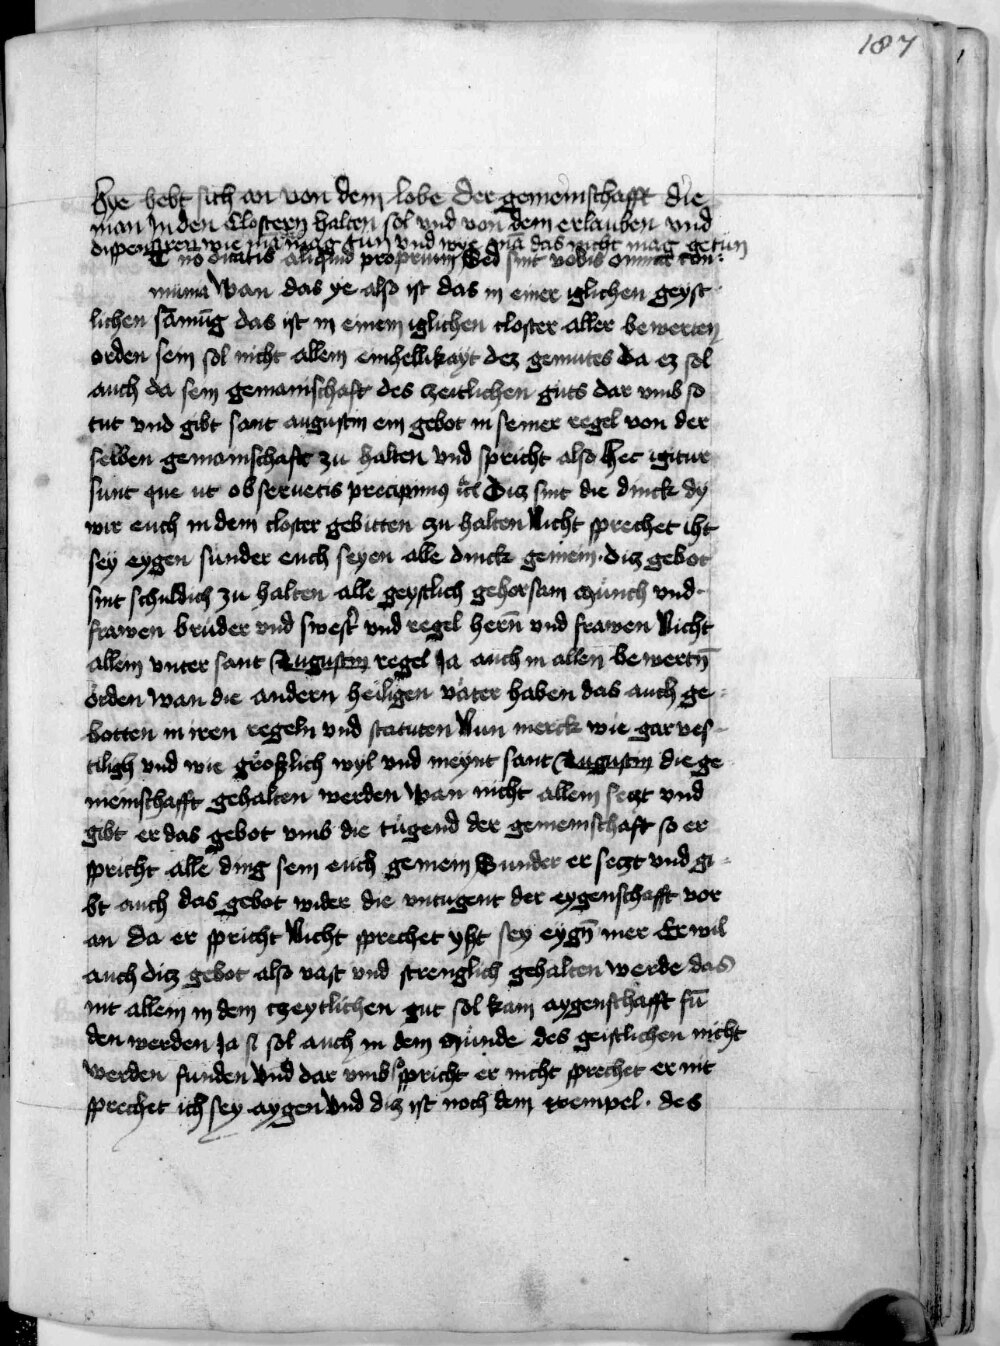 187
hye hebt sich an von dem lobe der gemeinschafft die
man In den Clostern halten sol vnd von dem erlauben vnd
dispensiren wie mā mag tun vnd wye mā das nicht mag getun
Et nō dicatis aliquid proprium Sed sint vobis omnia com-
munia Wan das ye also ist das in einer iglichen geyst
lichen sāmūg das ist in einem iglichen closter aller bewerten
orden sein sol nicht allein einhellikayt dez gemutes Da ez sol
auch da sein gemainschaft des czeitlichen guts dar vmb so
tut vnd gibt sant augustin ein gebot in seiner regel von der
selben gemainschaft zu halten vnd spricht also Hec igitur
sunt que ut obseruetis precipimꝰ Diz sint die dinck dy
wir euch in dem closter gebitten zu halten Nicht sprechet iht
sey eygen sunder euch seyen alle dinck gemein · diz gebot
sint schuldich zu halten alle geystlich gehorsam münch vnd
frawen bruder vnd swest̄ vnd regel hern̄ vnd frawen Nicht
allein vnter sant Augustin regel Ja auch in allen bewertn̄
orden wan die andern heiligen väter haben das auch ge-
botten in iren regeln vnd statuten Nun merck wie gar ves-
tiligh vnd wie größlich wyl vnd meynt sant Augustin die ge
meinschafft gehalten werden wan nicht allein seczt vnd
gibt er das gebot vmb die tugend der gemeinschaft so er
spricht alle ding sein euch gemein Sunder er seczt vnd gi-
bt auch das gebot wider die vntugent der eygenschafft vor
an da er spricht Nicht sprechet yht sey eygn̄ mer Er wil
auch diz gebot also vast vnd strenglich gehalten werde das
nit allein in dem czeytlichen gut sol kain aygenschafft fū
den werden Ja si sol auch in dem munde des geistlichen nicht
werden funden Vnd dar vmb so spricht er nicht sprechet er nit
sprechet ich sey aygen Vnd diz ist noch dem exempel · des